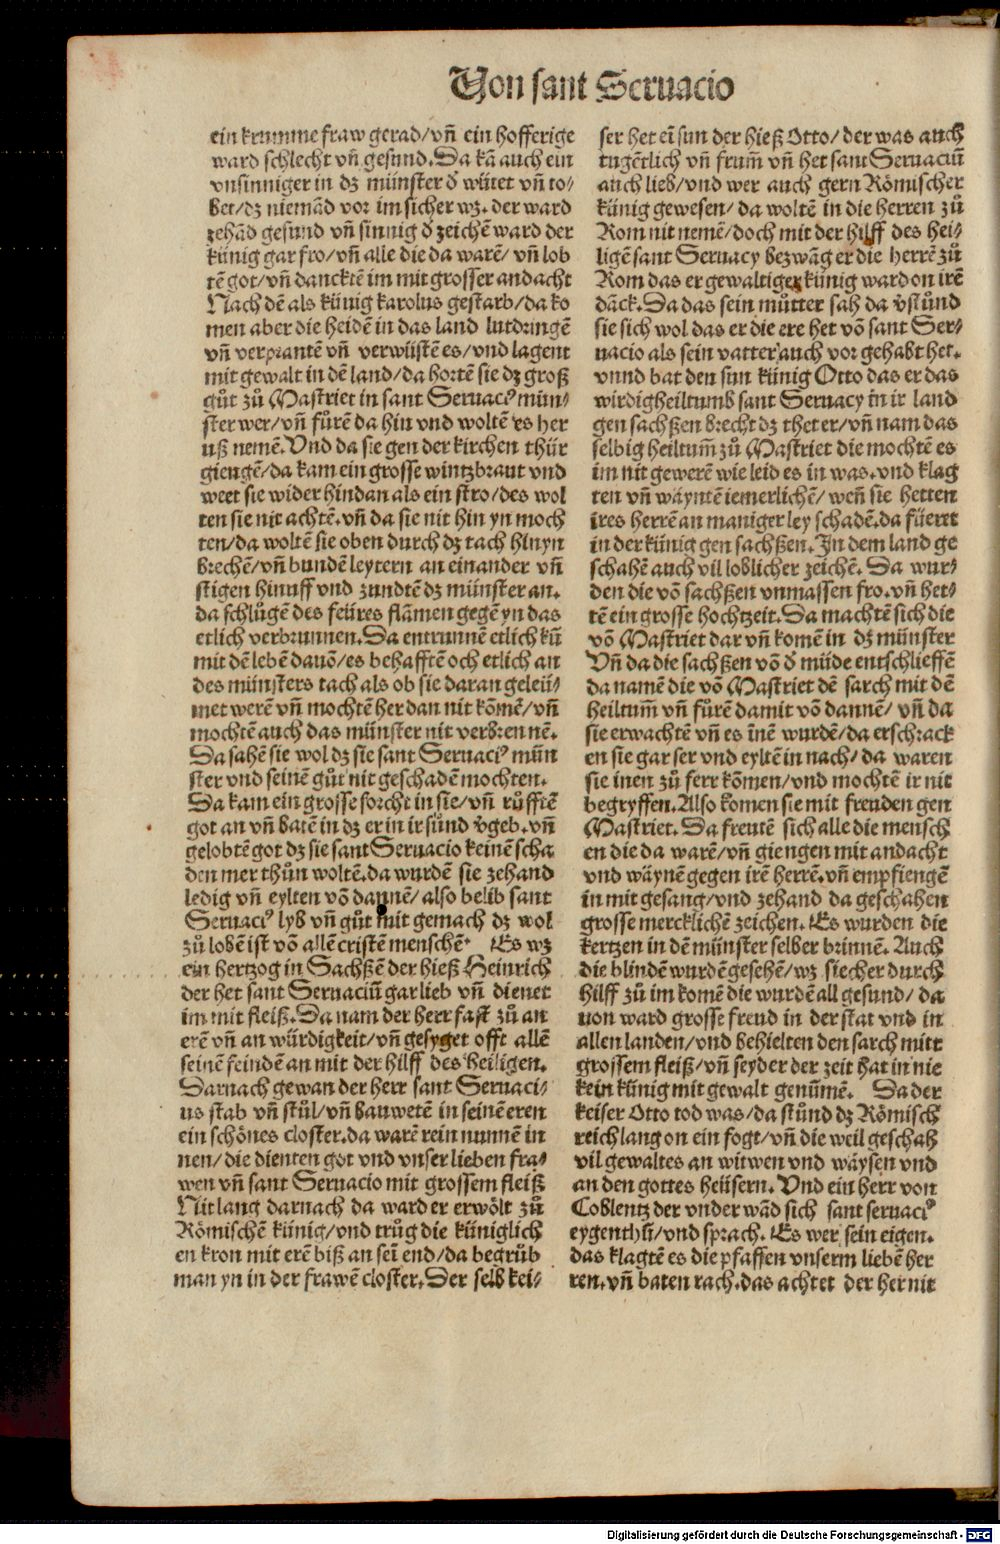 Von sant Seruacio
ein krumme fraw gerad/vñ ein hofferige
ward schlecht vñ gesund. Da kā auch ein
vnsinniger in dz münster d̕ wütet vñ to/
bet/dz niemād vor im sicher wz. der ward
zehād gesund vñ sinnig d̕ zeichē ward der
künig gar fro/vñ alle die da warē/vñ lob
tē got/vñ dancktē im mit grosser andacht
Nach dē als künig karolus gestarb/da ko
men aber die heidē in das land lutdringē
vñ verprantē vñ verwüstē es/vnd lagent
mit gewalt in dē land/da hortē sie dz groß
gůt zů Mastriet in sant Seruaciꝰ mün/
ster wer/vñ fůrē da hin vnd woltē es her
uß nemē. Vnd da sie gen der kirchen thür
giengē/da kam ein grosse wintzbraut vnd
weet sie wider hindan als ein stro/des wol
ten sie nit achtē. vñ da sie nit hin yn moch
ten/da woltē sie oben durch dz tach hinyn
brechē/vñ bundē leytern an einander vñ
stigen hinuff vnd zundtē dz münster an.
da schlůgē des feüres flāmen gegē yn das
etlich verbrunnen. Da entrunnē etlich kū
mit dē lebē dauō/es behafftē och etlich an
des münsters tach als ob sie daran geleü/
met werē vñ mochtē her dan nit kōmē/vñ
mochtē auch das münster nit verbren nē.
Da sahē sie wol dz sie sant Seruaciꝰ mün
ster vnd seinē gůt nit geschadē mochten.
Da kam ein grosse forcht in sie/vñ růfftē
got an vñ batē in dz er in ir sünd v̕geb. vñ
gelobtē got dz sie sant Seruacio keinē scha
den mer thůn woltē. da wurdē sie zehand
ledig vñ eylten vō dannē/also belib sant
Seruaciꝰ lyb vñ gůt mit gemach dz wol
zů lobē ist vō allē cristē menschē. Es wz
ein hertzog in Sachßē der hieß Heinrich
der het sant Seruaciū gar lieb vñ dienet
im mit fleiß. Da nam der herr fast zů an
erē vñ an würdigkeit/vñ gesyget offt allē
seinē feindē an mit der hilff des heiligen.
Darnach gewan der herr sant Seruaci/
us stab vñ stůl/vñ bauwetē in seinē eren
ein schönes closter. da warē rein nunnē in
nen/die dienten got vnd vnser lieben fra/
wen vñ sant Seruacio mit grossem fleiß
Nit lang darnach da ward er erwölt zů
Römischē künig/vnd trůg die küniglich
en kron mit erē biß an sei end/da begrůb
man yn in der frawē closter. Der selb kei/
ser het eī sun der hieß Otto/der was auch
tugētlich vñ frum̄ vñ het sant Seruaciū
auch lieb/vnd wer auch gern Römischer
künig gewesen/da woltē in die herren zů
Rom nit nemē/doch mit der hilff des hei/
ligē sant Seruacy bezwāg er die herrē zů
Rom das er gewaltiger künig ward on irē
dāck. Da das sein můtter sah da v̕stůnd
sie sich wol das er die ere het vō sant Ser/
uacio als sein vatter auch vor gehabt het.
vnnd bat den sun künig Otto das er das
wirdig heiltumb sant Seruacy in ir land
gen sachßen brecht dz thet er/vñ nam das
selbig heiltum̄ zů Mastriet die mochtē es
im nit gewerē wie leid es in was. vnd klag
ten vñ wāyntē iemerlichē/weñ sie hetten
ires herrē an maniger ley schadē. da fůeret
in der künig gen sachßen. In dem land ge
schahē auch vil loblicher zeichē. Da wur/
den die vō sachßen vnmassen fro. vñ het/
tē ein grosse hochtzeit. Da machtē sich die
vō Mastriet dar vñ komē in dz münster
Vñ da die sachßen vō d̕ müde entschlieffē
da namē die vō Mastriet dē sarch mit dē
heiltum̄ vñ fůrē damit vō dannē/ vñ da
sie erwachtē vñ es īnē wurdē/da erschrack
en sie gar ser vnd eyltē in nach/ da waren
sie inen zů ferr kōmen/vnd mochtē ir nit
begryffen. Also komen sie mit freuden gen
Mastriet. Da freutē sich alle die mensch
en die da warē/vñ giengen mit andacht
vnd wāynē gegen irē herrē. vñ empfiengē
in mit gesang/vnd zehand da geschahen
grosse mercklichē zeichen. Es wurden die
kertzen in dē münster selber brinnē. Auch
die blindē wurdē gesehē/wz siecher durch
hilff zů im komē die wurdē all gesund/ da
uon ward grosse freud in der stat vnd in
allen landen/vnd behielten den sarch mitt
grossem fleiß/vñ seyder der zeit hat in nie
kein künig mit gewalt genūmē. Da der
keiser Otto tod was/da stůnd dz Römisch
reich lang on ein fogt/vñ die weil geschah
vil gewaltes an witwen vnd wāysen vnd
an den gottes heüsern. Vnd ein herr von
Coblentz der vnder wād sich sant seruaciꝰ
eygenthū/vnd sprach. Es wer sein eigen.
das klagtē es die pfaffen vnserm liebē her
ren. vñ baten rach. das achtet der her nit
Digitalisierung gefördert durch die Deutsche Forschungsgemeinschaft - DFG